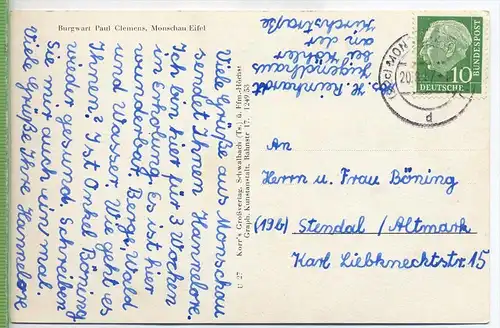 Burgwart Paul Clemens, Monschau-Eifel
Viele Grüße aus Monschau
sendet Ihnen Hannelore.
Ich bin hier für 3 Wochen
in Erholung. Es ist hier
wunderbar. Berge, Wald
und Wasser. Wie geht es
Ihnen? Ist Onkel Böning
wieder gesund. Schreiben
Sie mir auch ein mal.
Viele Grüße Ihre Hannelore
U 27 Korr's Großverlag, Schwalbach (Ts.) ü. Ffm.-Höchst
Graph. Kunstanstalt, Bahnstr. 17. 1249/53
Abs. H. Reinhardt
Jugendhaus
bei Köhler
an der
Kirchstraße
MON
20.
d
10
DEUTSCHE
BUNDESPOST
An
Herrn u. Frau Böning
(19b) Stendal / Altmark
Karl Liebknechtstr. 15